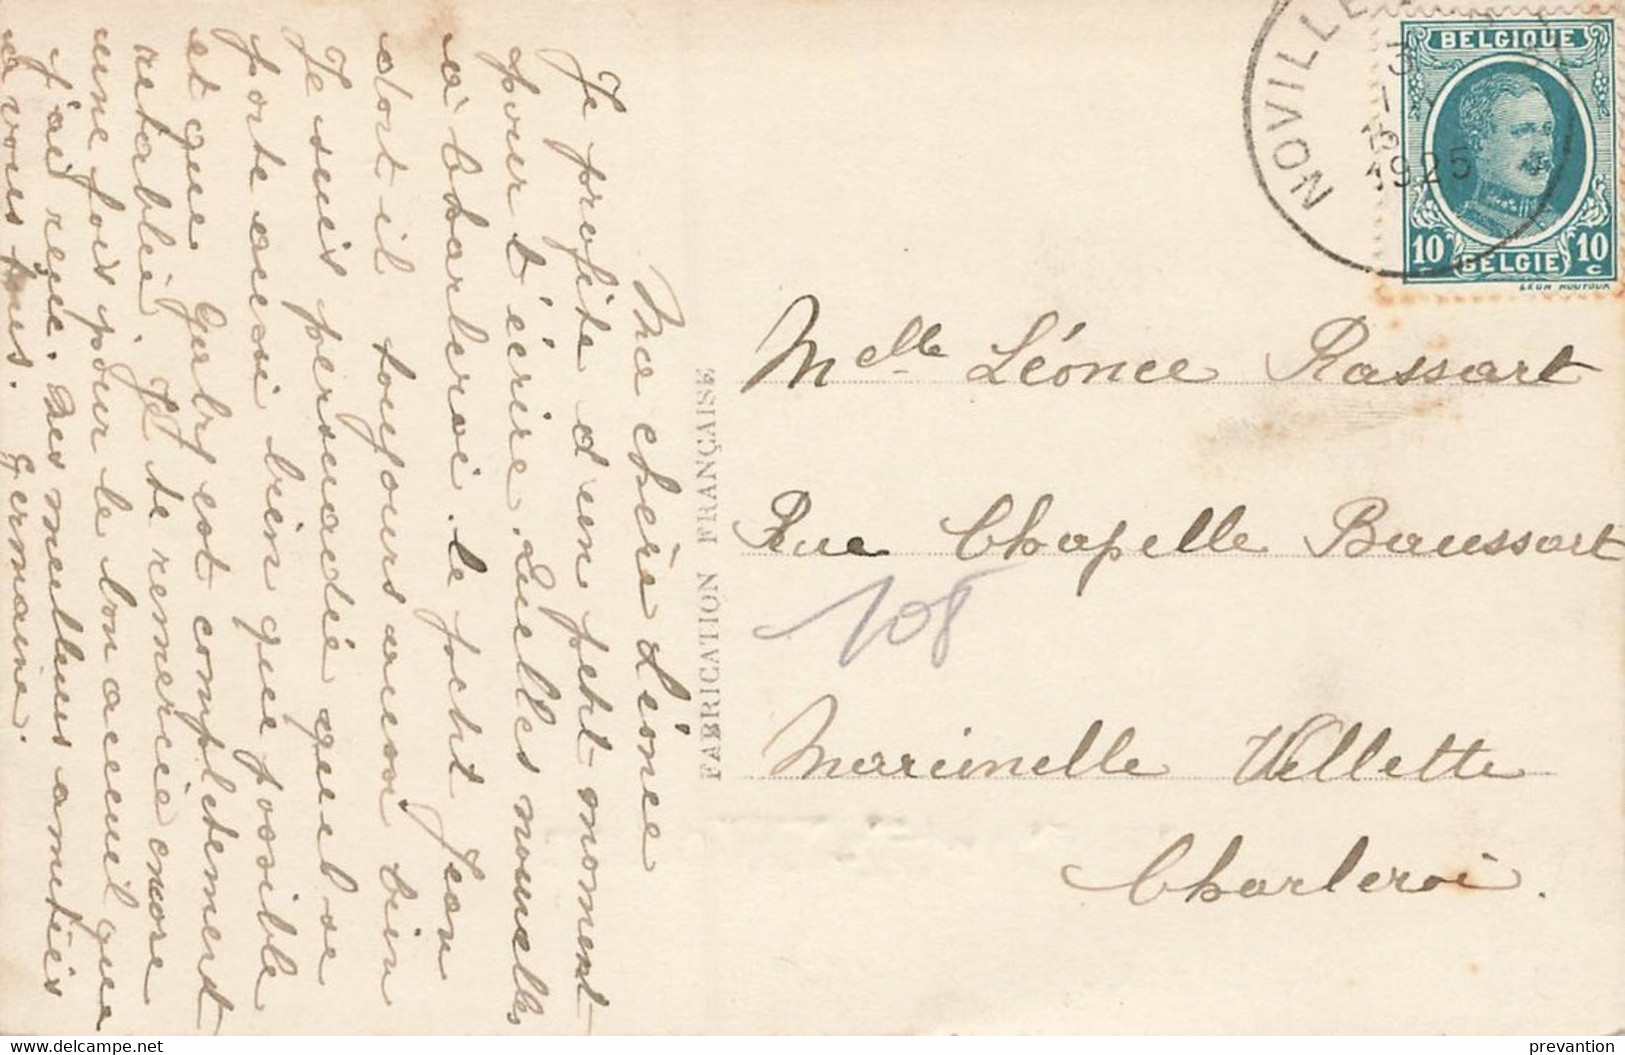 Ma chère Léonce
Je profite d'un petit moment
pour t'écrire. Quelles nouvelles
à Charleroi. le petit Jean
dort il toujours aussi bien
Je suis persuadée que l se
porte aussi bien que possible
et que Gabry est complètement
rétablie. Je te remercie encore
une fois pour le bon accueil que
j'ai reçue. Mes meilleurs amitiés
à vous tous. Germaine.
FABRICATION FRANÇAISE
NOVILLE
3
15
1925
BELGIQUE
10 c BELGIE 10 c
LEON HOUYOUX
Melle Léonce Rassart
Rue Chapelle Baussart
108
Marcinelle Villette
Charleroi.
prevantion
www.delcampe.net